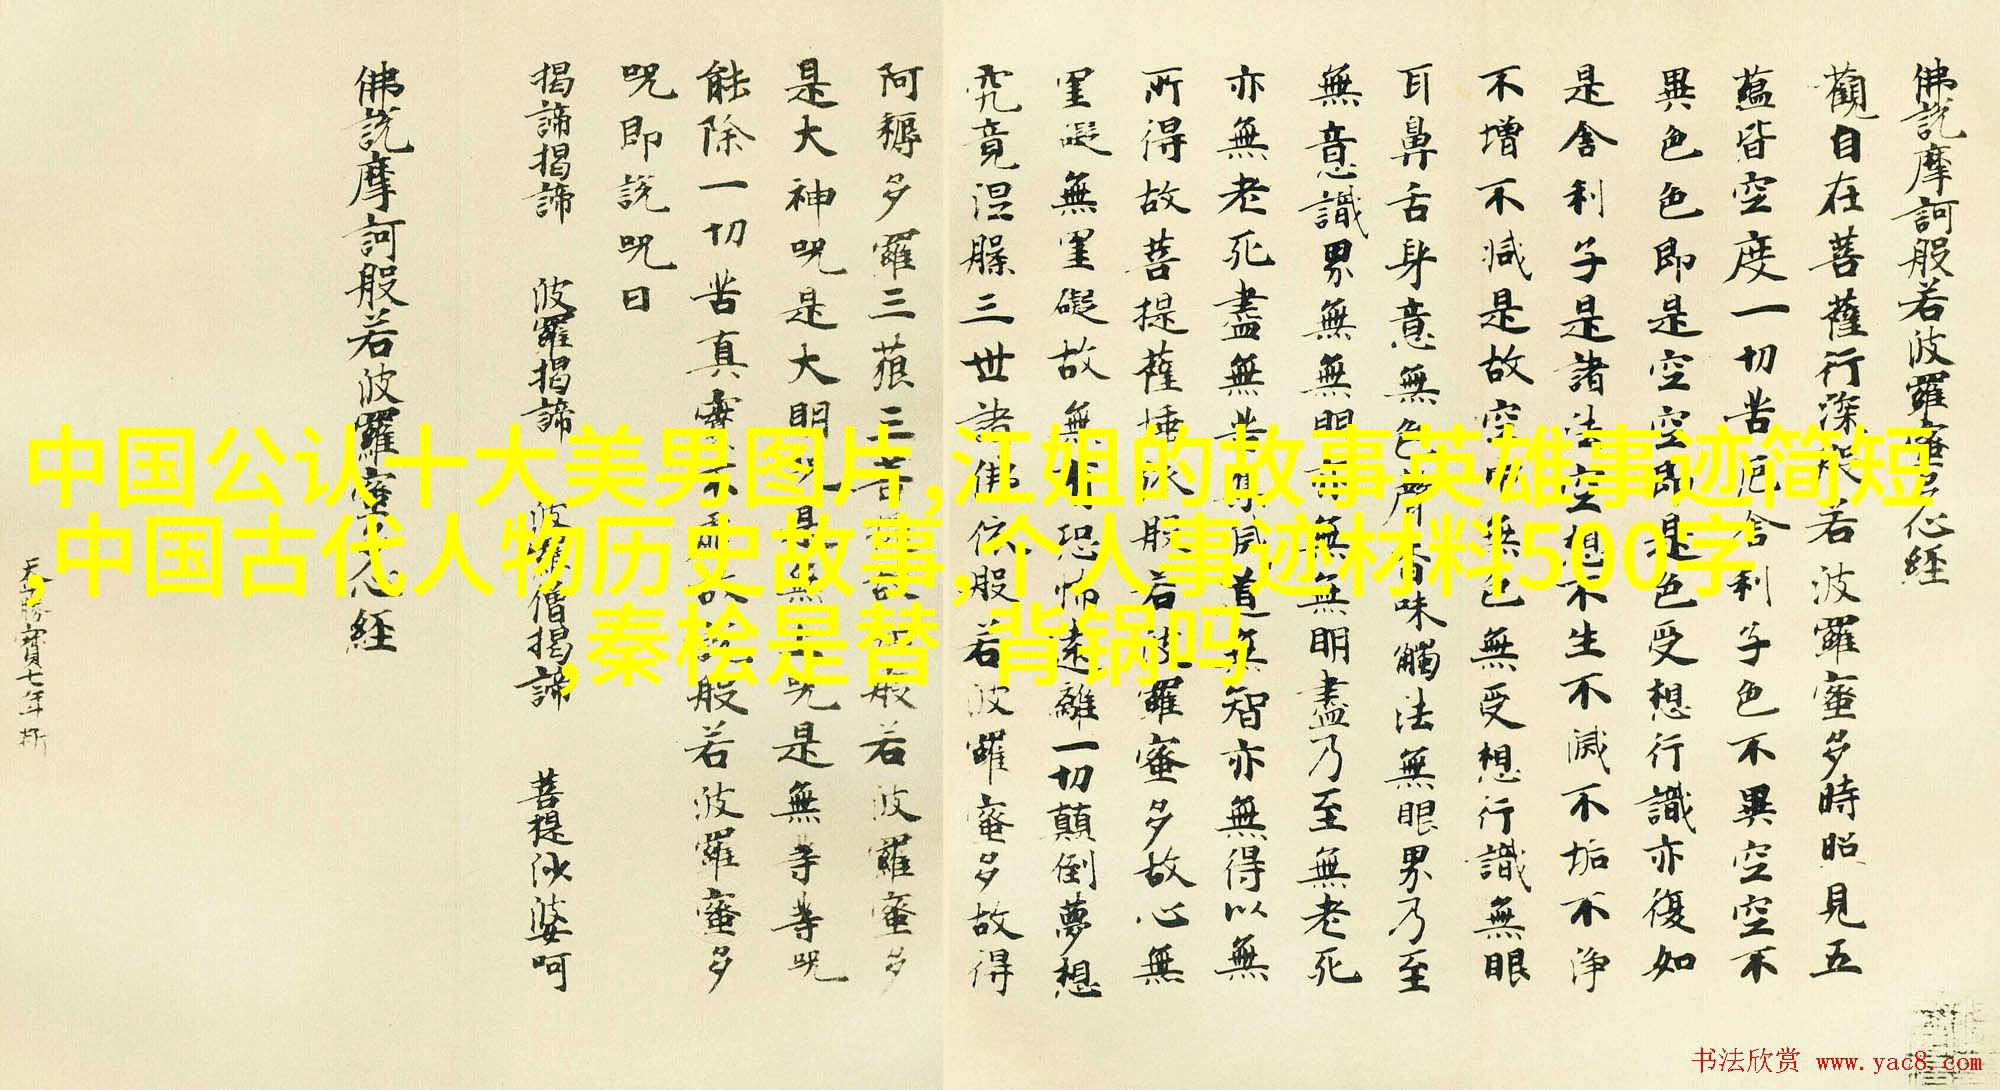 佛說摩訶般若波羅蜜多心經
觀自在菩薩行深般若波羅蜜多時照見五
蘊皆空度一切苦厄舍利子色不異空空不
異色色即是空空即是色受想行識亦復如
是舍利子是諸法空想不生不滅不垢不淨
不增不減是故空中無色無受想行識無眼
耳鼻舌身意無色聲香味觸法無眼界乃至
無意識界無無明亦無無明盡乃至無老死
亦無老死盡無苦集滅道無智亦無得以無
所得故菩提薩埵依般若波羅蜜多故心無
罣礙無罣礙故無有恐怖遠離一切顛倒夢想
究竟涅槃三世諸佛依般若波羅蜜多故得
阿耨多羅三藐三菩提故知般若波羅蜜多
是大神咒是大明咒是無上咒是無等等咒
能除一切苦真實不虛故說般若波羅蜜多
咒即說咒曰
揭諦揭諦 波羅揭諦 波羅僧揭諦 菩提娑婆呵
佛說摩訶般若波羅蜜多心經
天平勝寶七年
中国公认十大美男图片,江姐的故事英雄事迹简短
,中国古代人物历史故事,个人事迹材料500字
,秦桧是替 背锅吗
书法欣赏 www.yac8.com